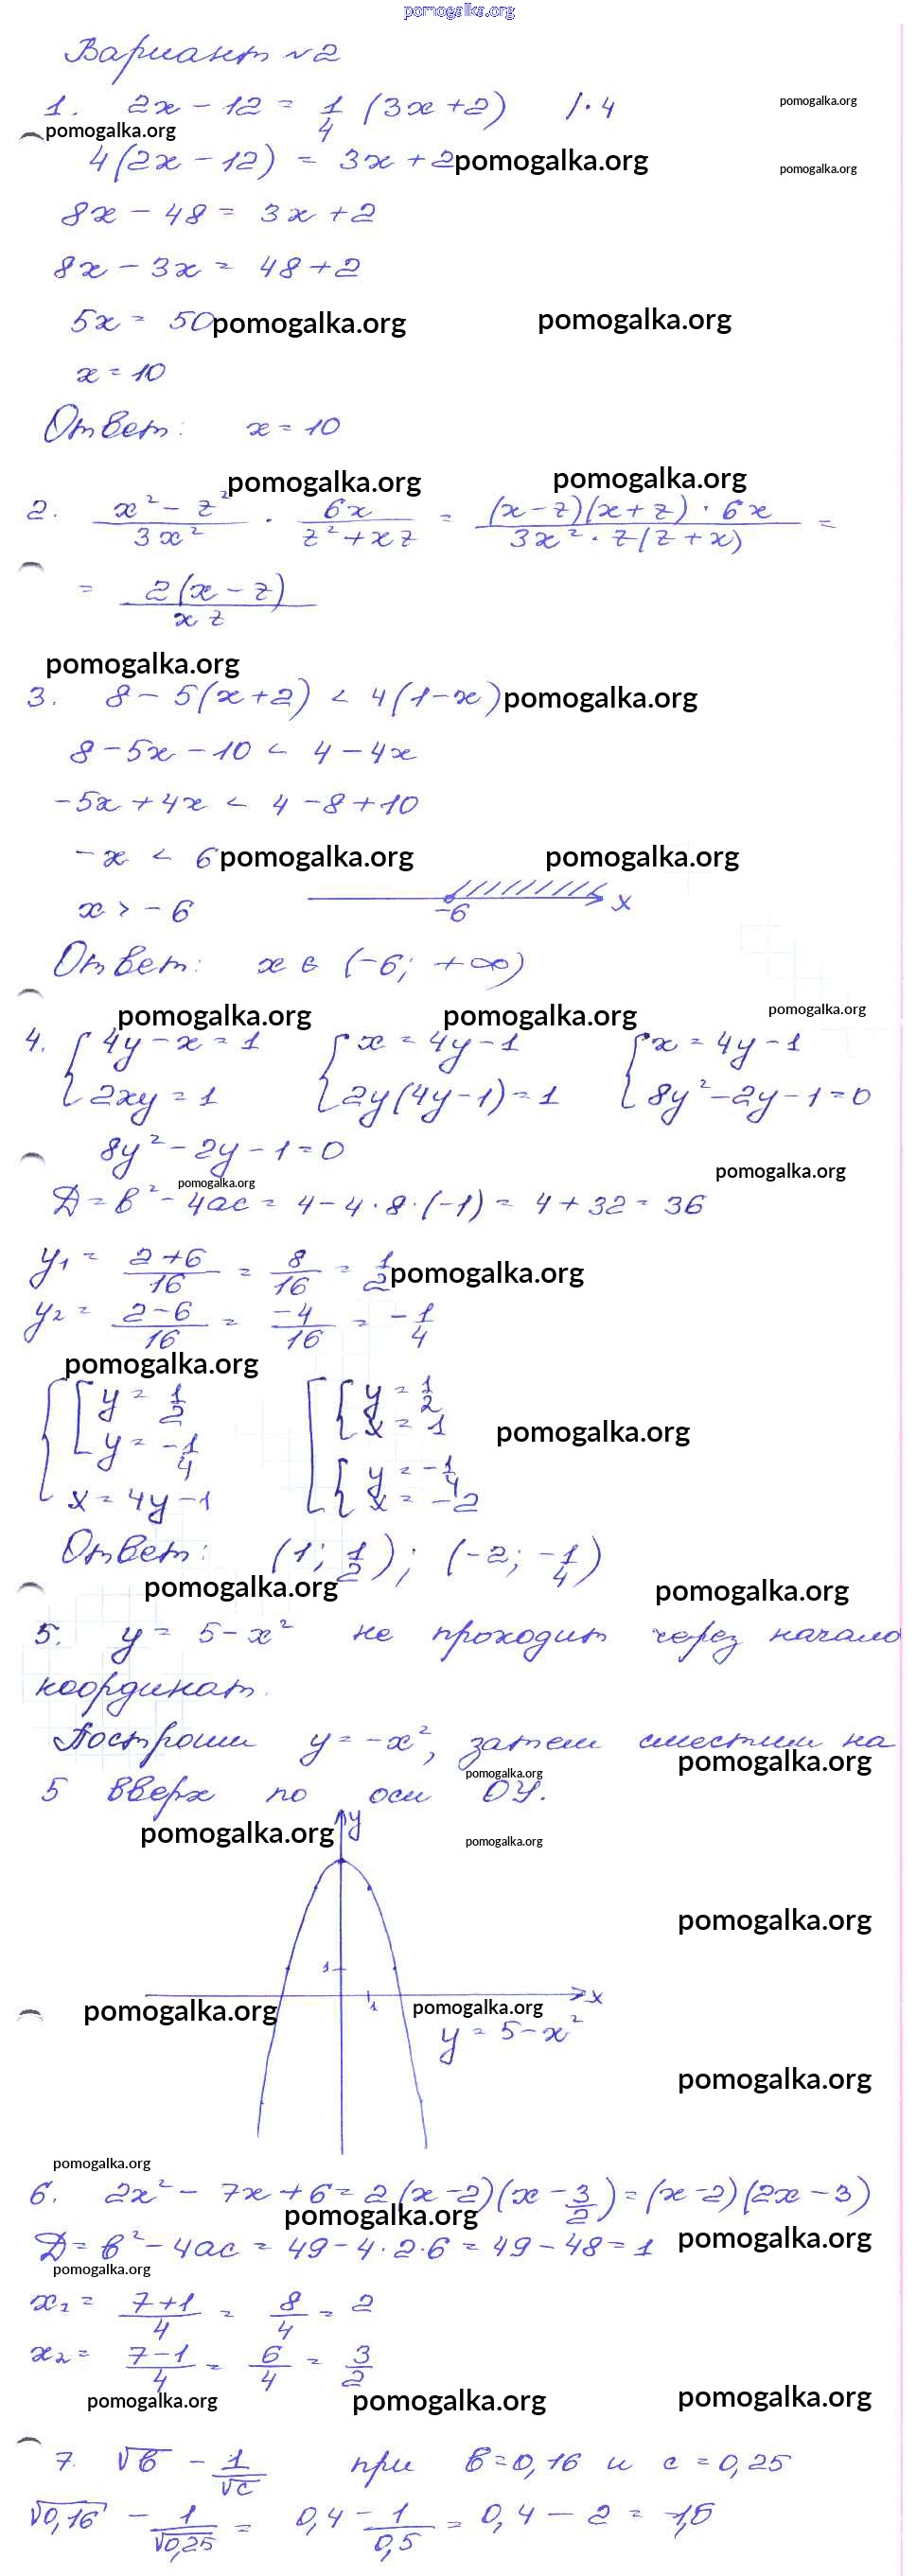 pomogalka.org
Вариант №2
1. 2x - 12 = 1/4 (3x + 2) / · 4
pomogalka.org
pomogalka.org
4(2x - 12) = 3x + 2 pomogalka.org
pomogalka.org
8x - 48 = 3x + 2
8x - 3x = 48 + 2
5x = 50 pomogalka.org pomogalka.org
x = 10
Ответ: x = 10
pomogalka.org pomogalka.org
2. (x² - z²)/(3x²) · 6x/(z² + xz) = ((x - z)(x + z) · 6x)/(3x² · z(z + x)) =
= 2(x - z)/(xz)
pomogalka.org
3. 8 - 5(x + 2) < 4(1 - x) pomogalka.org
8 - 5x - 10 < 4 - 4x
-5x + 4x < 4 - 8 + 10
-x < 6 pomogalka.org pomogalka.org
x > -6 -6 x
Ответ: x ∈ (-6; +∞)
pomogalka.org pomogalka.org pomogalka.org
4. { 4y - x = 1 { x = 4y - 1 { x = 4y - 1
2xy = 1 2y(4y - 1) = 1 8y² - 2y - 1 = 0
8y² - 2y - 1 = 0
pomogalka.org pomogalka.org
Д = b² - 4ac = 4 - 4 · 8 · (-1) = 4 + 32 = 36
y₁ = (2 + 6)/16 = 8/16 = 1/2 pomogalka.org
y₂ = (2 - 6)/16 = -4/16 = -1/4
pomogalka.org
{ [ y = 1/2 [ { y = 1/2
x = 1
y = -1/4 pomogalka.org
{ y = -1/4
x = 4y - 1 x = -2
Ответ: (1; 1/2); (-2; -1/4)
pomogalka.org pomogalka.org
5. y = 5 - x² не проходит через начало
координат.
Построим y = -x², затем сместим на
pomogalka.org
pomogalka.org
5 вверх по оси ОУ.
pomogalka.org y
pomogalka.org
pomogalka.org
1
1 x
pomogalka.org pomogalka.org
y = 5 - x²
pomogalka.org
pomogalka.org
6. 2x² - 7x + 6 = 2(x - 2)(x - 3/2) = (x - 2)(2x - 3)
pomogalka.org
Д = b² - 4ac = 49 - 4 · 2 · 6 = 49 - 48 = 1 pomogalka.org
pomogalka.org
x₁ = (7 + 1)/4 = 8/4 = 2
x₂ = (7 - 1)/4 = 6/4 = 3/2
pomogalka.org pomogalka.org pomogalka.org
7. √b - 1/√c при b = 0,16 и c = 0,25
√0,16 - 1/√0,25 = 0,4 - 1/0,5 = 0,4 - 2 = -1,6